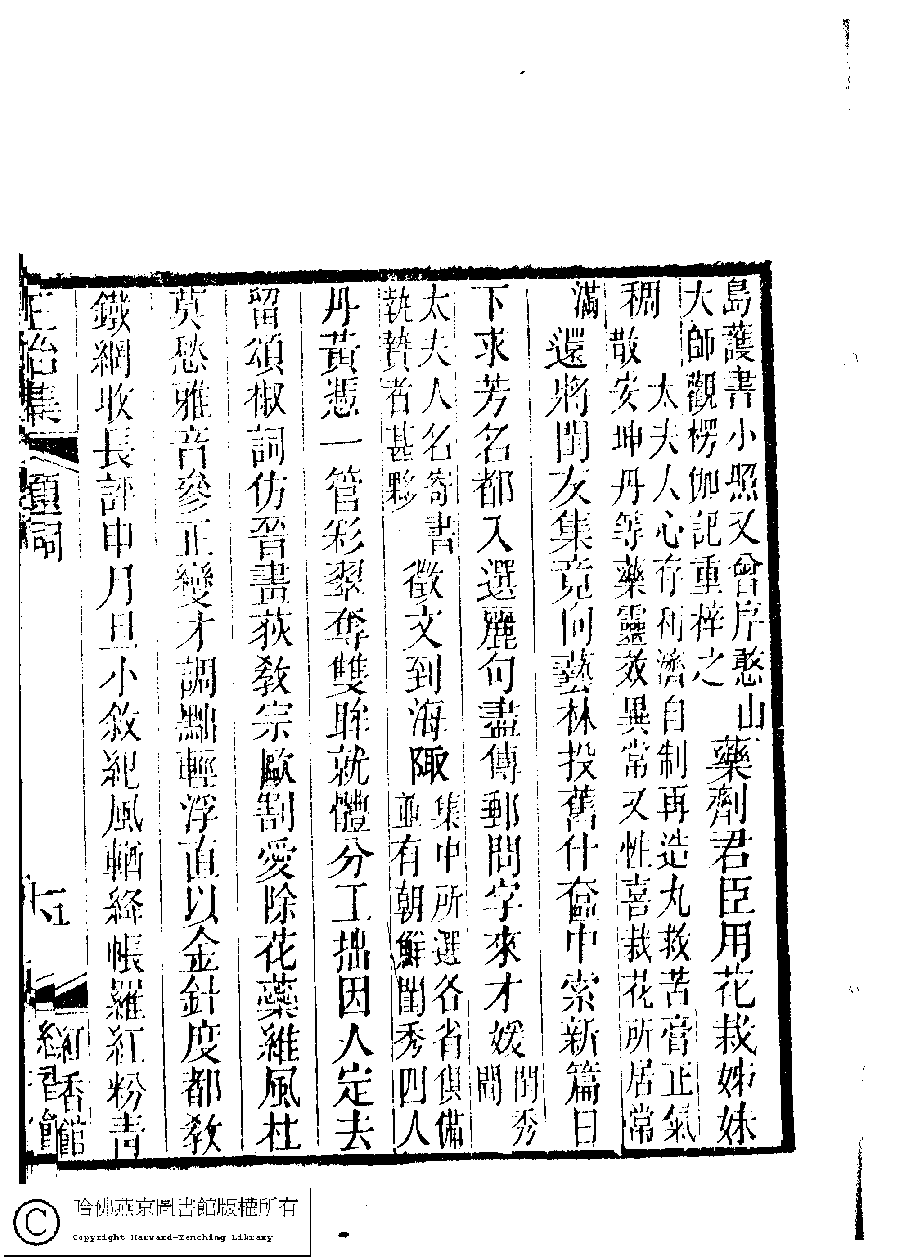 島護書小照又曾序憨山
大師觀楞伽記重梓之
藥劑君臣用花栽姊妹
稠
太夫人心存利濟自制再造丸救苦膏正氣
敬安坤丹等藥靈效異常又性喜栽花所居常
滿
還將閨友集竟向藝林投舊什奩中索新篇日
下求芳名都入選麗句盡傳郵問字來才媛
閨秀
聞
太夫人名寄書
執贄者甚夥
徵文到海陬
集中所選各省俱備
並有朝鮮閨秀四人
丹黃憑一管彩翠奪雙眸就體分工拙因人定去
留頌椒詞仿晉畫荻教宗歐割愛除花藥維風杜
莫愁雅音參正變才調黜輕浮直以金針度都教
鐵網收長評申月旦小敘紀風輶絳帳羅紅粉青
正始集
題詞
十五
紅香館
哈佛燕京圖書館版權所有
Copyright Harvard-Yenching Library